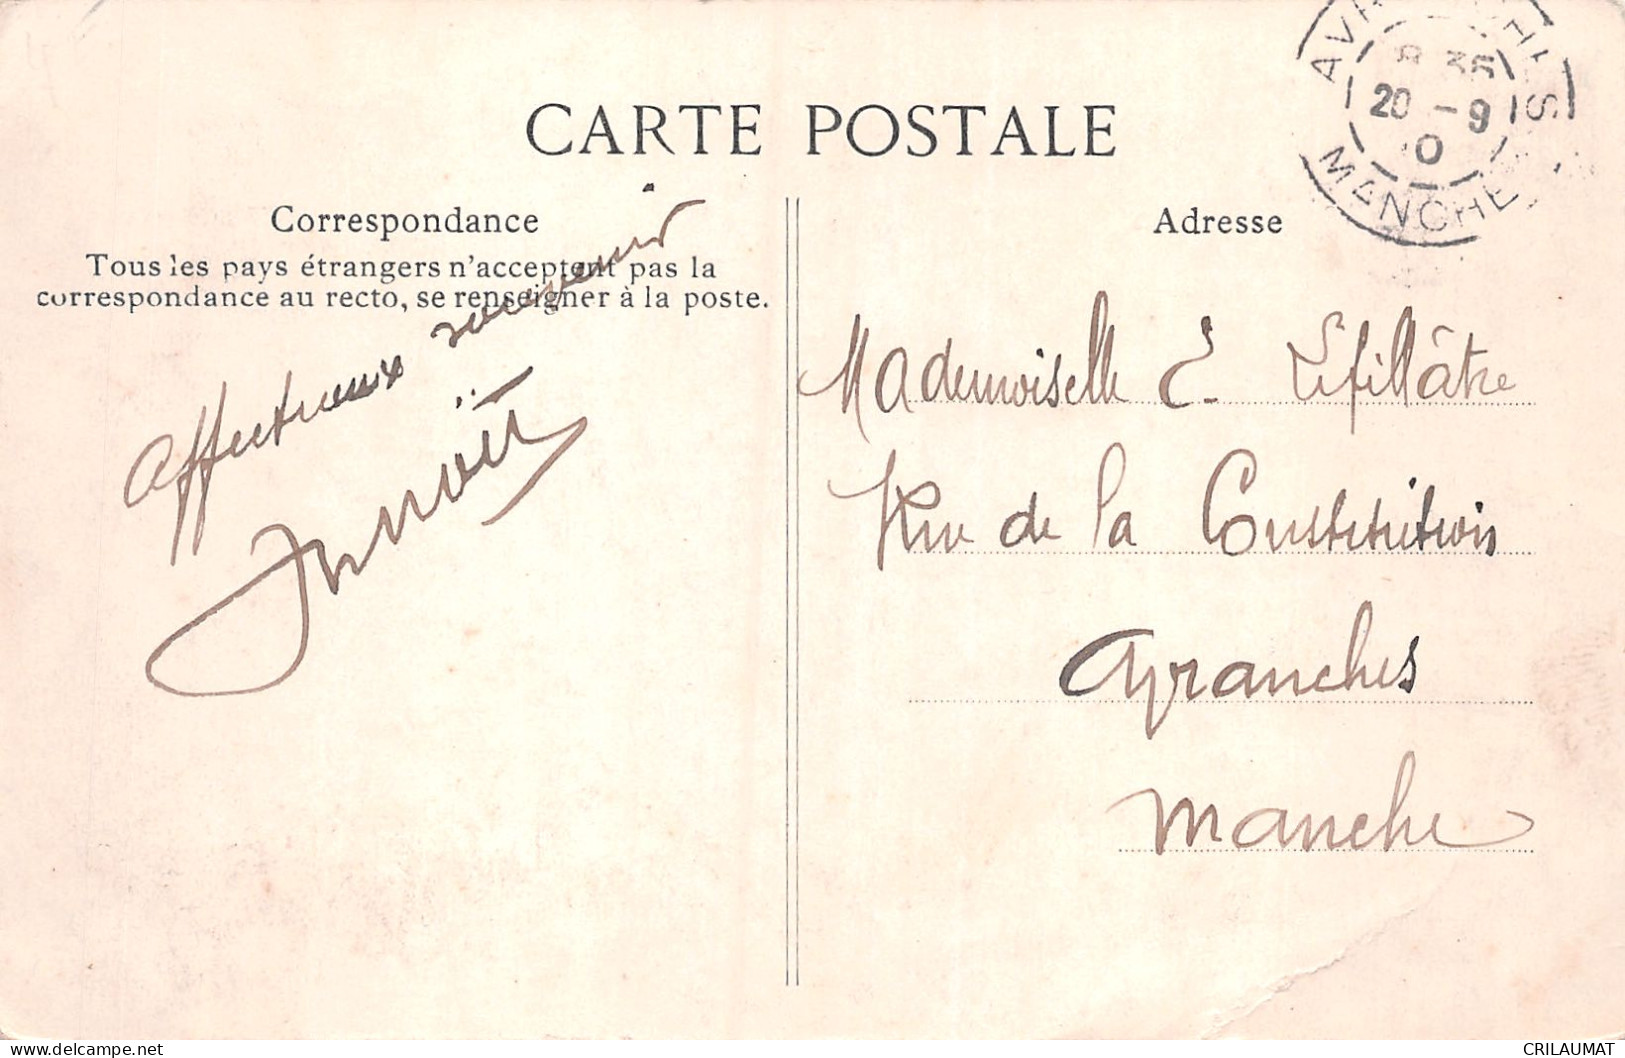 CARTE POSTALE
Correspondance
Tous les pays étrangers n'acceptent pas la
correspondance au recto, se renseigner à la poste.
Affectueux souvenir
Adresse
Mademoiselle E. Lefillâtre
Rue de la Constitution
Avranches
Manche
AVRANCHES
8 35
20 - 9
10
MANCHE
CRILAUMAT